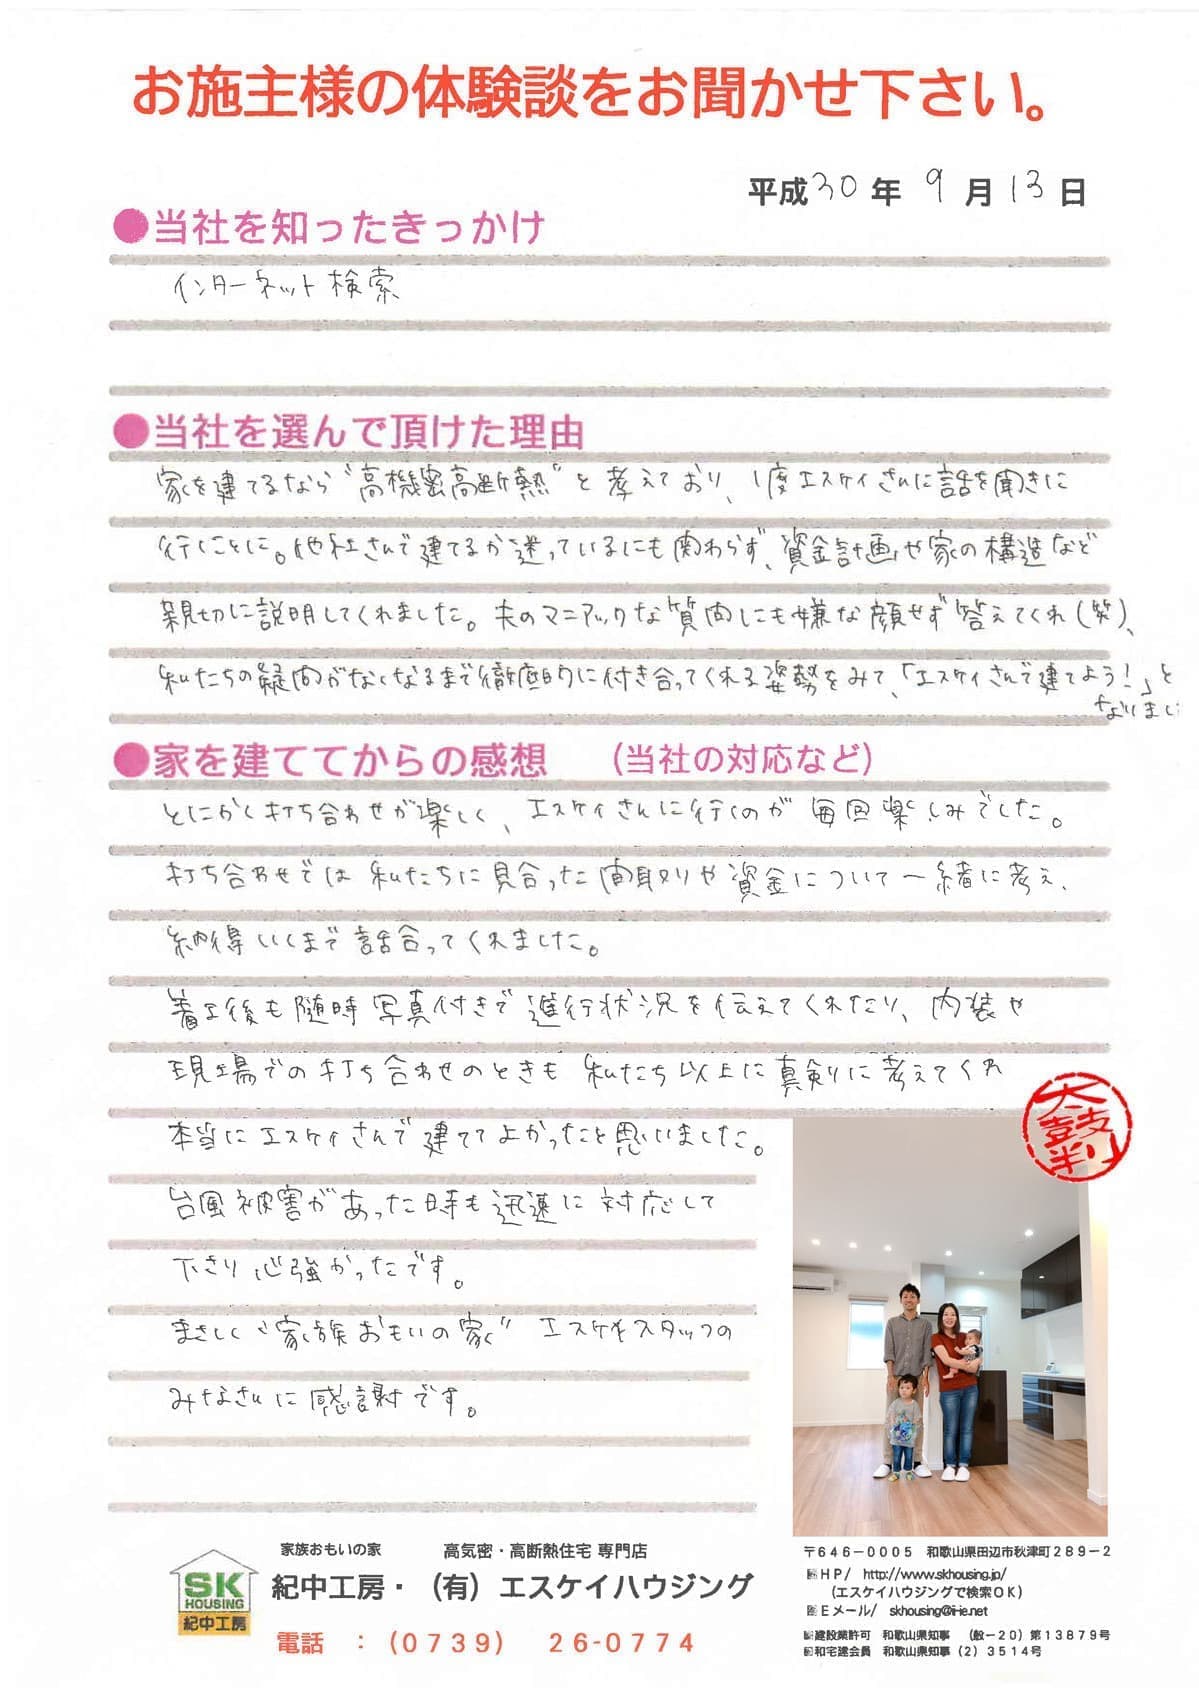 お施主様の体験談をお聞かせ下さい。
平成30年 9月13日
●当社を知ったきっかけ
インターネット検索
●当社を選んで頂けた理由
家を建てるなら“高機密高断熱”と考えており、1度エスケイさんに話を聞きに
行くことに。他社さんで建てるか迷っているにも関わらず、資金計画や家の構造など
親切に説明してくれました。夫のマニアックな質問にも嫌な顔せず答えてくれ(笑)、
私たちの疑問がなくなるまで徹底的に付き合ってくれる姿勢をみて、「エスケイさんで建てよう!」と
なりまし
●家を建ててからの感想 (当社の対応など)
とにかく打ち合わせが楽しく、エスケイさんに行くのが毎回楽しみでした。
打ち合わせでは私たちに見合った間取りや資金について一緒に考え、
納得いくまで話合ってくれました。
着工後も随時写真付きで進行状況を伝えてくれたり、内装や
現場での打ち合わせのときも私たち以上に真剣に考えてくれ
本当にエスケイさんで建ててよかったと思いました。
台風被害があった時も迅速に対応して
下さり心強かったです。
まさしく“家族おもいの家”エスケイスタッフの
みなさんに感謝です。
太鼓判
家族おもいの家 高気密・高断熱住宅 専門店
SK HOUSING 紀中工房
紀中工房・(有)エスケイハウジング
電話 :(0739) 26-0774
〒646-0005 和歌山県田辺市秋津町289-2
HP/ http://www.skhousing.jp/
(エスケイハウジングで検索OK)
Eメール/ skhousing@i-ie.net
建設業許可 和歌山県知事 (般-20)第13879号
和宅建会員 和歌山県知事(2)3514号